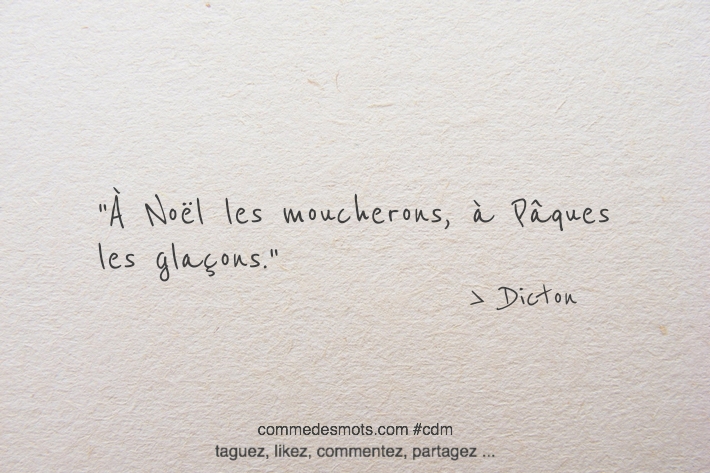 "À Noël les moucherons, à Pâques
les glaçons."
> Dicton
commedesmots.com #cdm
taguez, likez, commentez, partagez ...